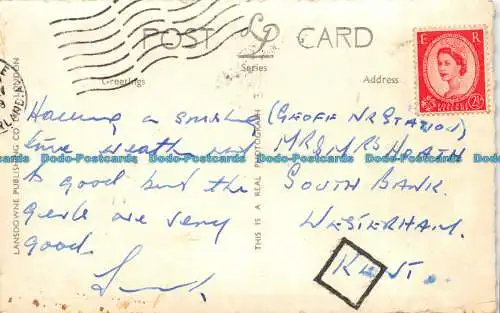 POST LP CARD
Series
Greetings
Address
E R
POSTAGE REVENUE
2½D
Having a smashing
time weather not
to good but the
are very
good.
(GEOFF NR STATION)
MR & MRS HEATH
SOUTH BANK.
WESTERHAM.
KENT.
LANSDOWNE PUBLISHING CO LONDON
THIS IS A REAL PHOTOGRAPH
Dodo-Postcards Dodo-Postcards Dodo-Postcards Dodo-Postcards